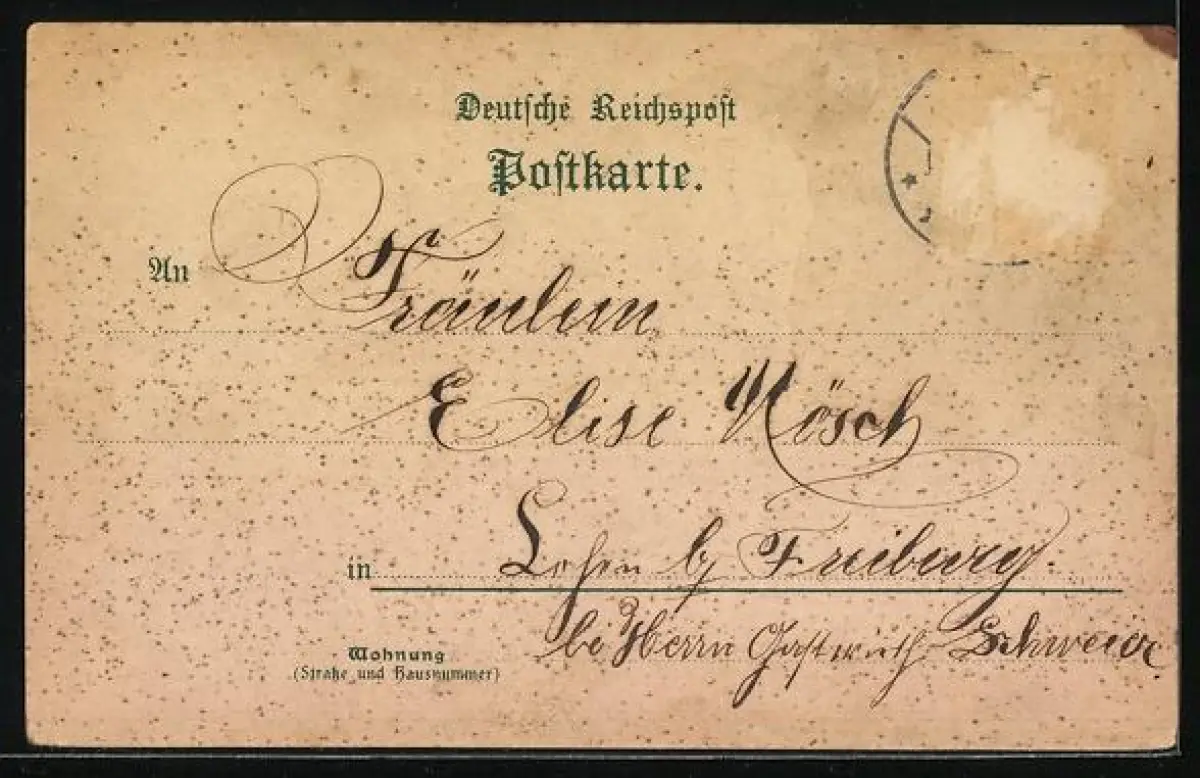 Deutsche Reichspost
Postkarte.
An
Fräulein
Elise Rösch
in Lehen b/ Freiburg.
bei Herrn Gastwirth
Wohnung
(Straße und Hausnummer)